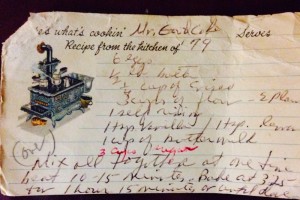 es what's cookin' Mr. Good Cake Serves
Recipe from the kitchen of '79
6 Eggs
1/2 lb butter
1/2 cup of Crisco
3 cups of flour
1 tsp vanilla 1 tsp. lemon
1 cup of buttermilk
3 cups sugar
(over)
Mix all together at one time
beat 10-15 minutes. Bake at 325
for 1 hour 15 minutes or until done